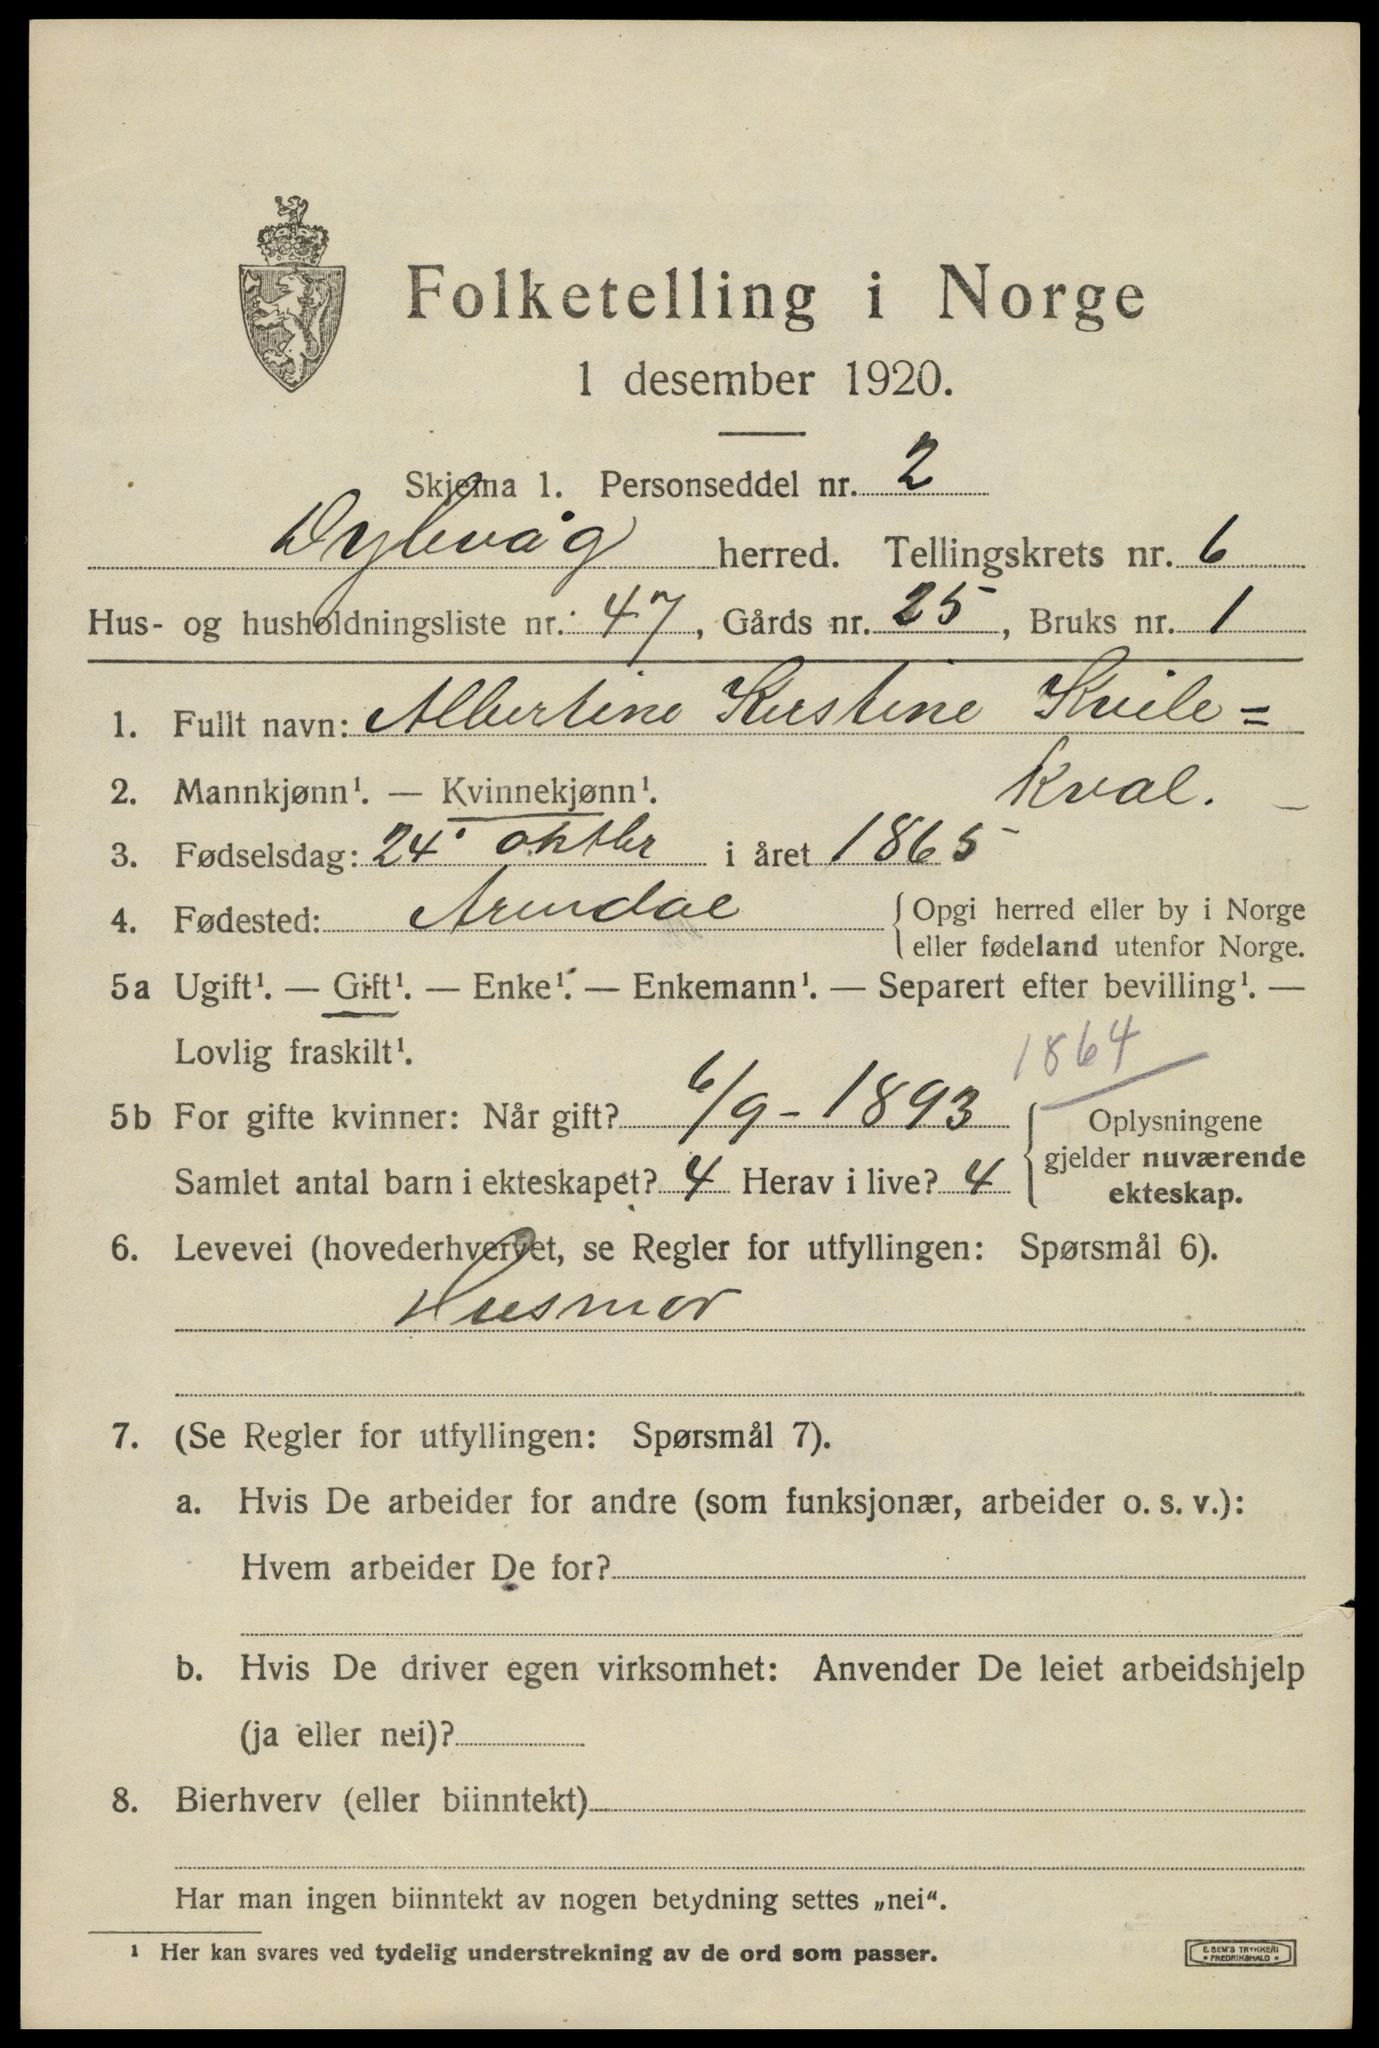 Folketelling i Norge
1 desember 1920.
Skjema 1. Personseddel nr. 2
Dybvåg herred. Tellingskrets nr. 6
Hus- og husholdningsliste nr. 47, Gårds nr. 25, Bruks nr. 1
1. Fullt navn: Albertine Kirstine Kvile=
kval.
2. Mannkjønn¹. — Kvinnekjønn¹.
3. Fødselsdag: 24. oktbr i året 1865
4. Fødested: Arendal { Opgi herred eller by i Norge
eller fødeland utenfor Norge.
5a Ugift¹. — Gift¹. — Enke¹. — Enkemann¹. — Separert efter bevilling¹. —
Lovlig fraskilt¹.
1864
5b For gifte kvinner: Når gift? 6/9-1893 { Oplysningene
gjelder nuværende
ekteskap.
Samlet antal barn i ekteskapet? 4 Herav i live? 4
6. Levevei (hovederhvervet, se Regler for utfyllingen: Spørsmål 6).
Husmor
7. (Se Regler for utfyllingen: Spørsmål 7).
a. Hvis De arbeider for andre (som funksjonær, arbeider o. s. v.):
Hvem arbeider De for?
b. Hvis De driver egen virksomhet: Anvender De leiet arbeidshjelp
(ja eller nei)?
8. Bierhverv (eller biinntekt)
Har man ingen biinntekt av nogen betydning settes „nei“.
¹ Her kan svares ved tydelig understrekning av de ord som passer.
E. SEM'S TRYKKERI
• FREDRIKSHALD •